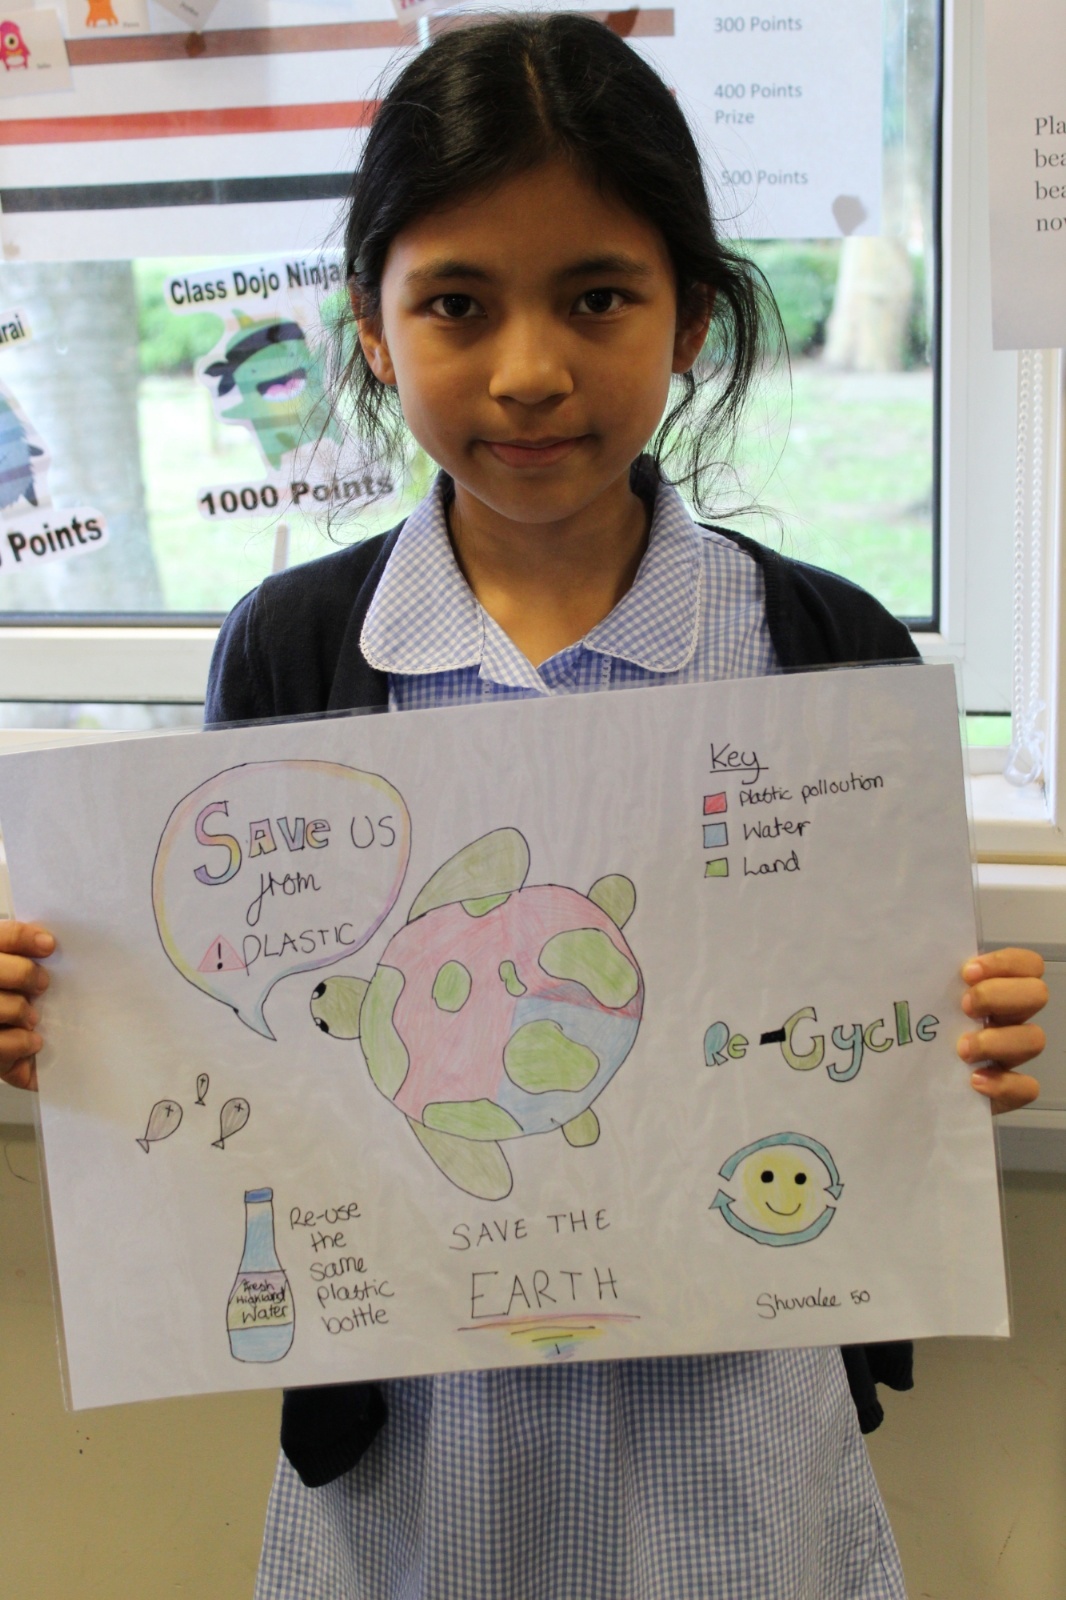 300 Points
400 Points
Prize
500 Points
Class Dojo Ninja
1000 Points
Points
Pla
bea
bea
nov
Save us
from
! PLASTIC
Key
Plastic polloution
Water
Land
Re-Cycle
Re-use
the
same
plastic
bottle
Fresh
Highland
Water
SAVE THE
EARTH
Shuvalee 5O